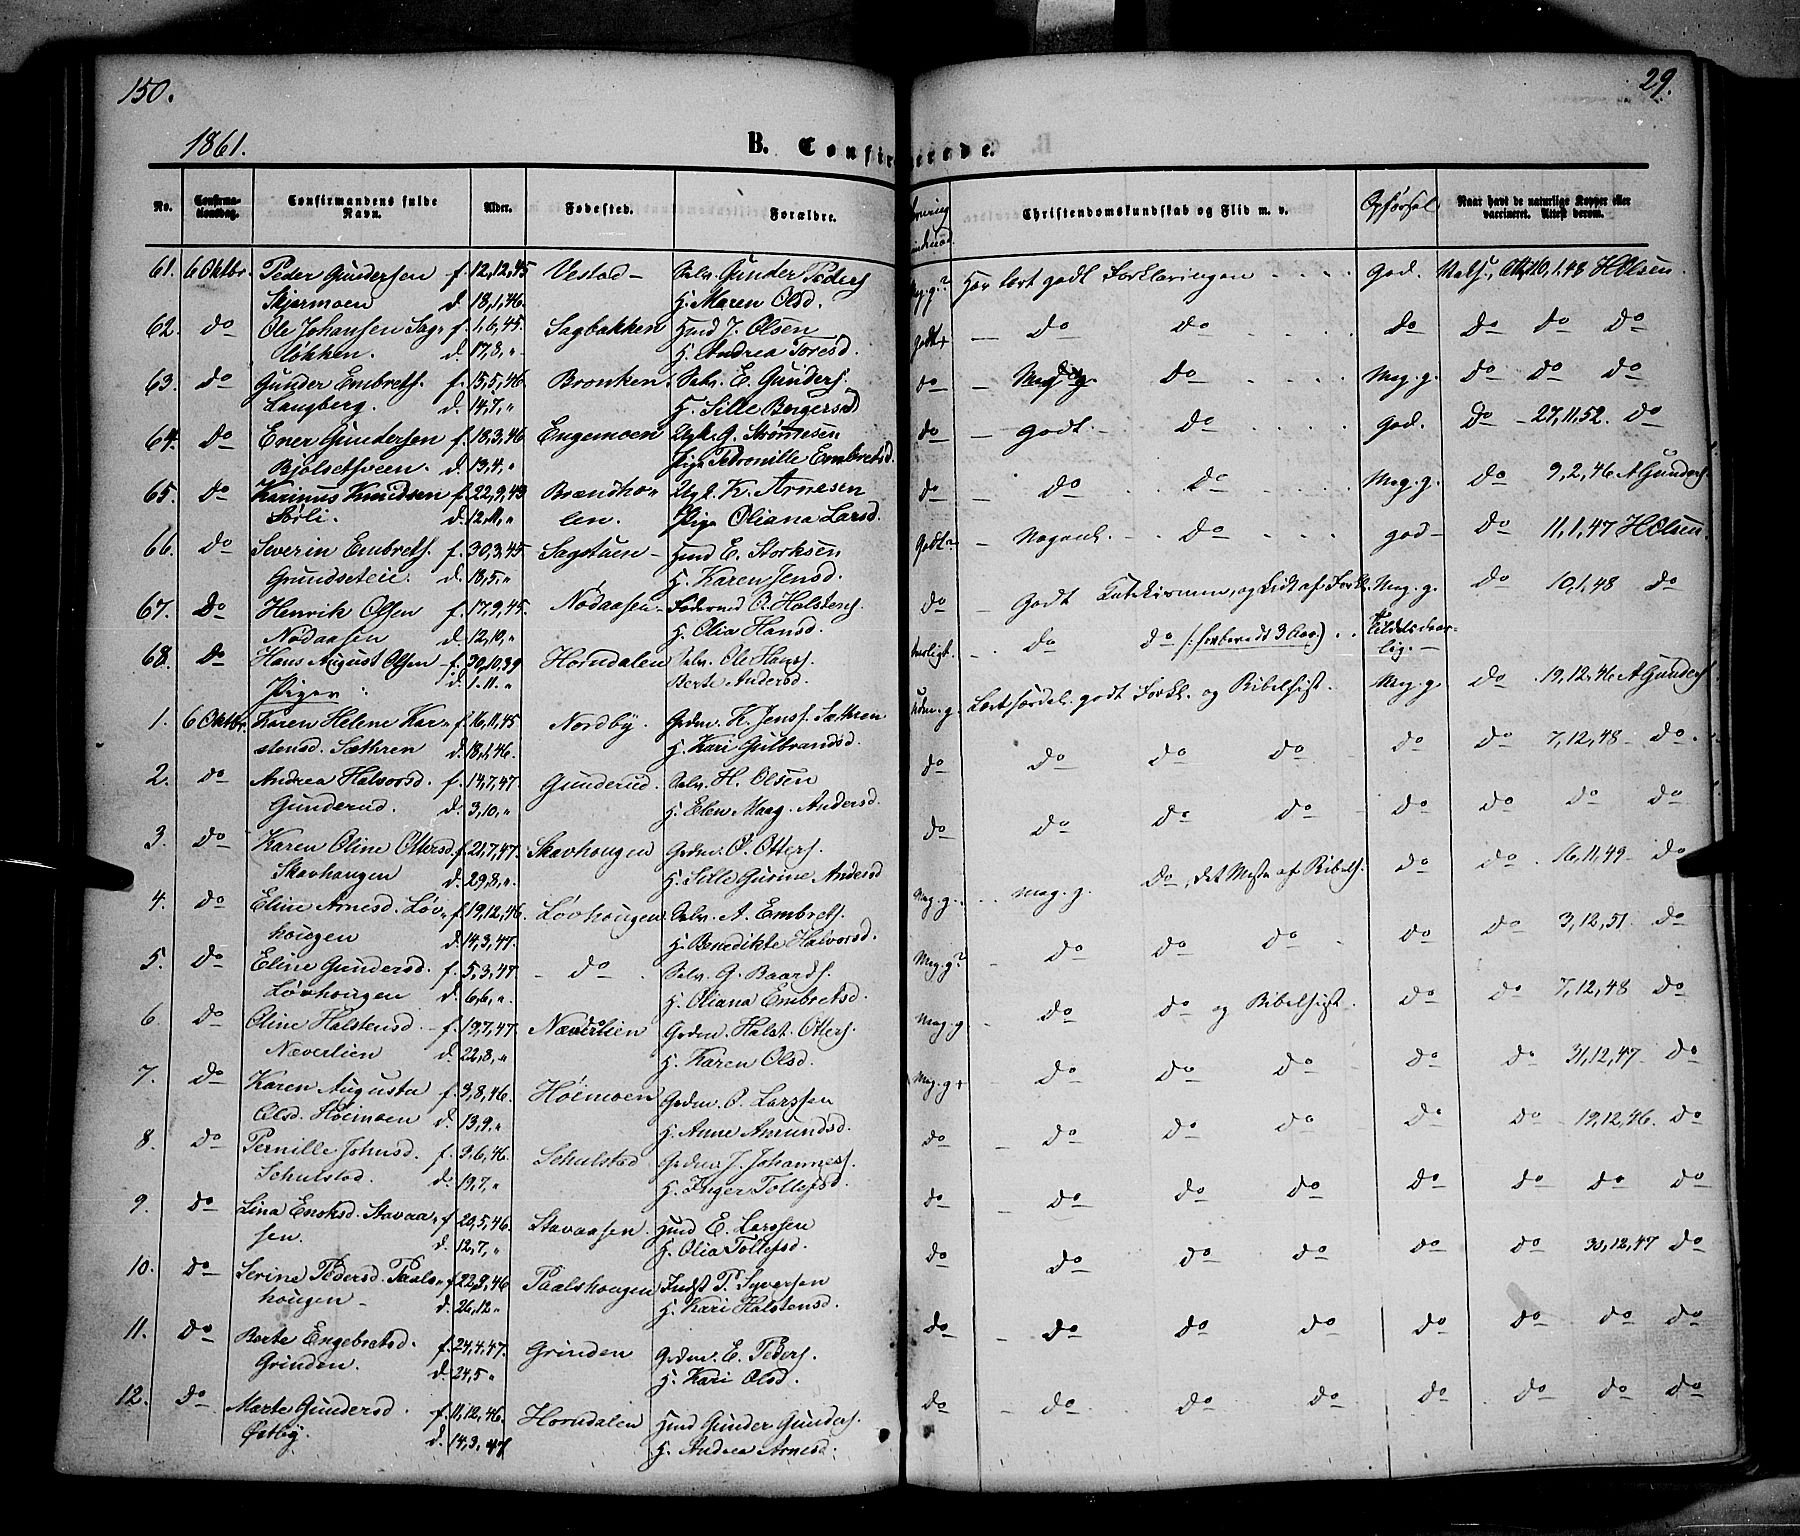 150.
29.
1861.
B. Confirmerede.
No.
Confirma-
tionsdag.
Confirmandens fulde
Navn.
Alder.
Fødested.
Forældre.
Christendomskundskab og Flid m. v.
Opførsel
Naar havt de naturlige Kopper eller
vaccineret. Attest derom.
61. 6 Oktbr. Peder Gundersen f. 12,12,45 Vestad – Selv. Gunder Peders
Skjærmoen d. 18,1,46. H. Maren Olsd.
Mg. g? Har lært godt Forklaringen God. 10,1,48 H Olsen
62. do Ole Johansen Sag- f. 1,6,45. Sagbakken Hmd J. Olsen
løkken. d. 17,8,„ H. Andrea Toresd.
Godt+ do do do do do do
63. do Gunder Embrets. f. 15,5,46 Bronken. Selv. E. Gunders.
Langberg. d. 14,7,„ H. Sille Børgersd
do – do Meg. g. do do do
64. do Ener Gundersen f. 18,3,46 Engemoen Ugk. G. Strømesen
Bjølsetveen. d. 13,4,„ Pige Petronille Embretsd.
do – Godt – do God. do – 27,11,52. do
65. do Karinus Knudsen f. 22,9,45 Brændho-
Sørli. d. 12,11,„ len. Ugk. K. Arnesen
Pige Oliana Larsd.
do – do do Meg. g. do 9,2,46 A Gunders
66. do Severin Embrets. f. 30,3,45 Sagstuen – Hmd E. Storksen
Grundseteie. d. 18,5,„ H. Karen Jensd.
Godt – Nogenl. – do god – do 11,1,47 H Olsen.
67. do Henrik Olsen f. 17,9,45. Nødaasen – O. Halstens.
Nødaasen d. 12,10,„ H. Olia Hansd.
do – Godt Katekismen, og Lidt af Forkl. Meg. g. do 10,1,48 do
68. do Hans August Olsen f. 30,10,39 Horndalen Selv. Ole Hans.
d. 1.11.„ Berte Andersd.
do do (: forberedt 3 Aar)
Piger
1. 6 Oktbr. Karen Helene Kar- f. 16,11,45 Nordby. Grdm. K. Jens. Sæthren
stensd. Sæthren d. 18,1,46. H. Kari Gulbrandsd.
Udm. g. Lært særdel. godt Forkl. og Bibelhist. Meg. g. do 19,12,46 A Gunders
2. do Andrea Halvorsd. f. 14,7,47 Gunderud. Selv. H. Olsen
Gunderud. d. 3,10,„ H. Elen Marg. Andersd.
do do do do do do 7,12,48 – do
3. do Karen Oline Ottersd. f. 21,7,47. Skavhougen Grdm. O. Otters.
Skavhougen d. 29,8,„. H. Sille Gurine Andersd
do do do do do do do do
4. do Eline Arnesd. Løv- f. 19,12,46. Løvhougen Selv. A. Embrets.
hougen d. 14,3,47. H. Benedikte Halvorsd.
Meg. g. meg. g. do, det Meste af Bibelh. do do 16,11,49 – do
5. do Eline Gundersd. f. 5,3,47 – do – Selv. G. Baards.
Løvhougen d. 6,6,„. H. Oliana Embretsd.
Meg. g? – do do do do do 3,12,51. do
6. do Oline Halstensd. f. 13,7,47 Næverlien Grdm. Halst. Otters.
Næverlien d. 22,8,„ H. Karen Olsd.
Meg. g – do do og Bibelhist. do do 7,12,48 do
7. do Karen Augusta f. 3,8,46. Høimoen Grdm. O. Larssen
Olsd. Høimoen d. 13,9.„ H. Anne Amundsd.
Meg. g+ do do do do do 31,12,47 – do
8. do Pernille Johnsd. f. 3,6,46. Schulstad Grdm. J. Johannes.
Schulstad. d. 19,7,„ H. Inger Tollefsd.
do – do do do do do 19,12,46. do
9. do Lina Enoksd. Stavaa- f. 20,5,46. Stavaasen. Hmd E. Larssen
sen. d. 12,7,„ H. Olia Tollefsd.
do do do do do do do do
10. do Serine Pedersd. Paals- f. 22,9,46. Paalshougen Indst P. Syversen
hougen – d. 26,12„ H. Kari Halstensd.
do do do do do do 30,12,47 do
11. do Berte Engebretsd. f. 24,4,47. Grinden Grdm. E. Peders.
Grinden. d. 24,5 „ H. Kari Olsd.
do – do do do do do do do
12. do Marte Gundersd. f. 11,12,46. Horndalen Hmd Gunder Gunders.
Østby. d. 14,3,47 H. Andrea Arnesd.
do do do do do do do do